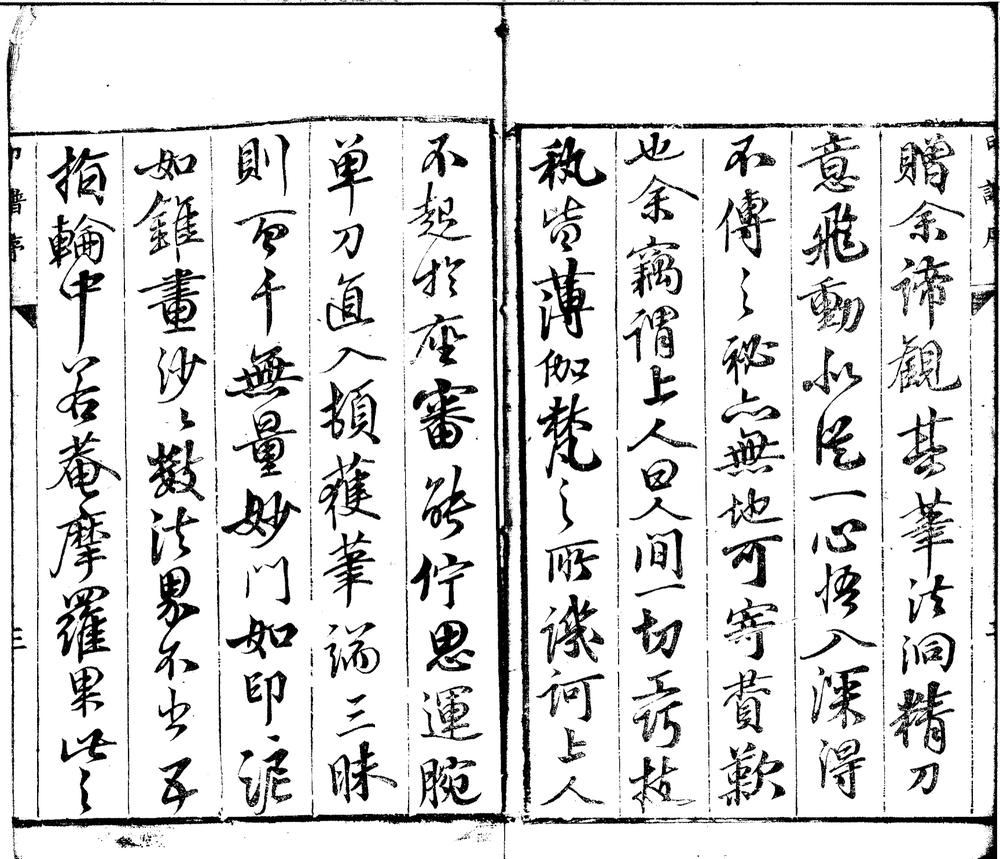 贈余諦觀其筆法洞精刀
意飛動似從一心悟入深得
不傳之秘亦無地可寄贊歎
也余竊謂上人曰人間一切工巧技
秇皆薄伽梵之所譏訶上人
不起於座審能佇思運腕
単刀直入頓獲筆端三昧
則百千無量妙門如印〻泥
如錐畫沙〻數法界不出五
指輪中若菴摩羅果此之
印譜序